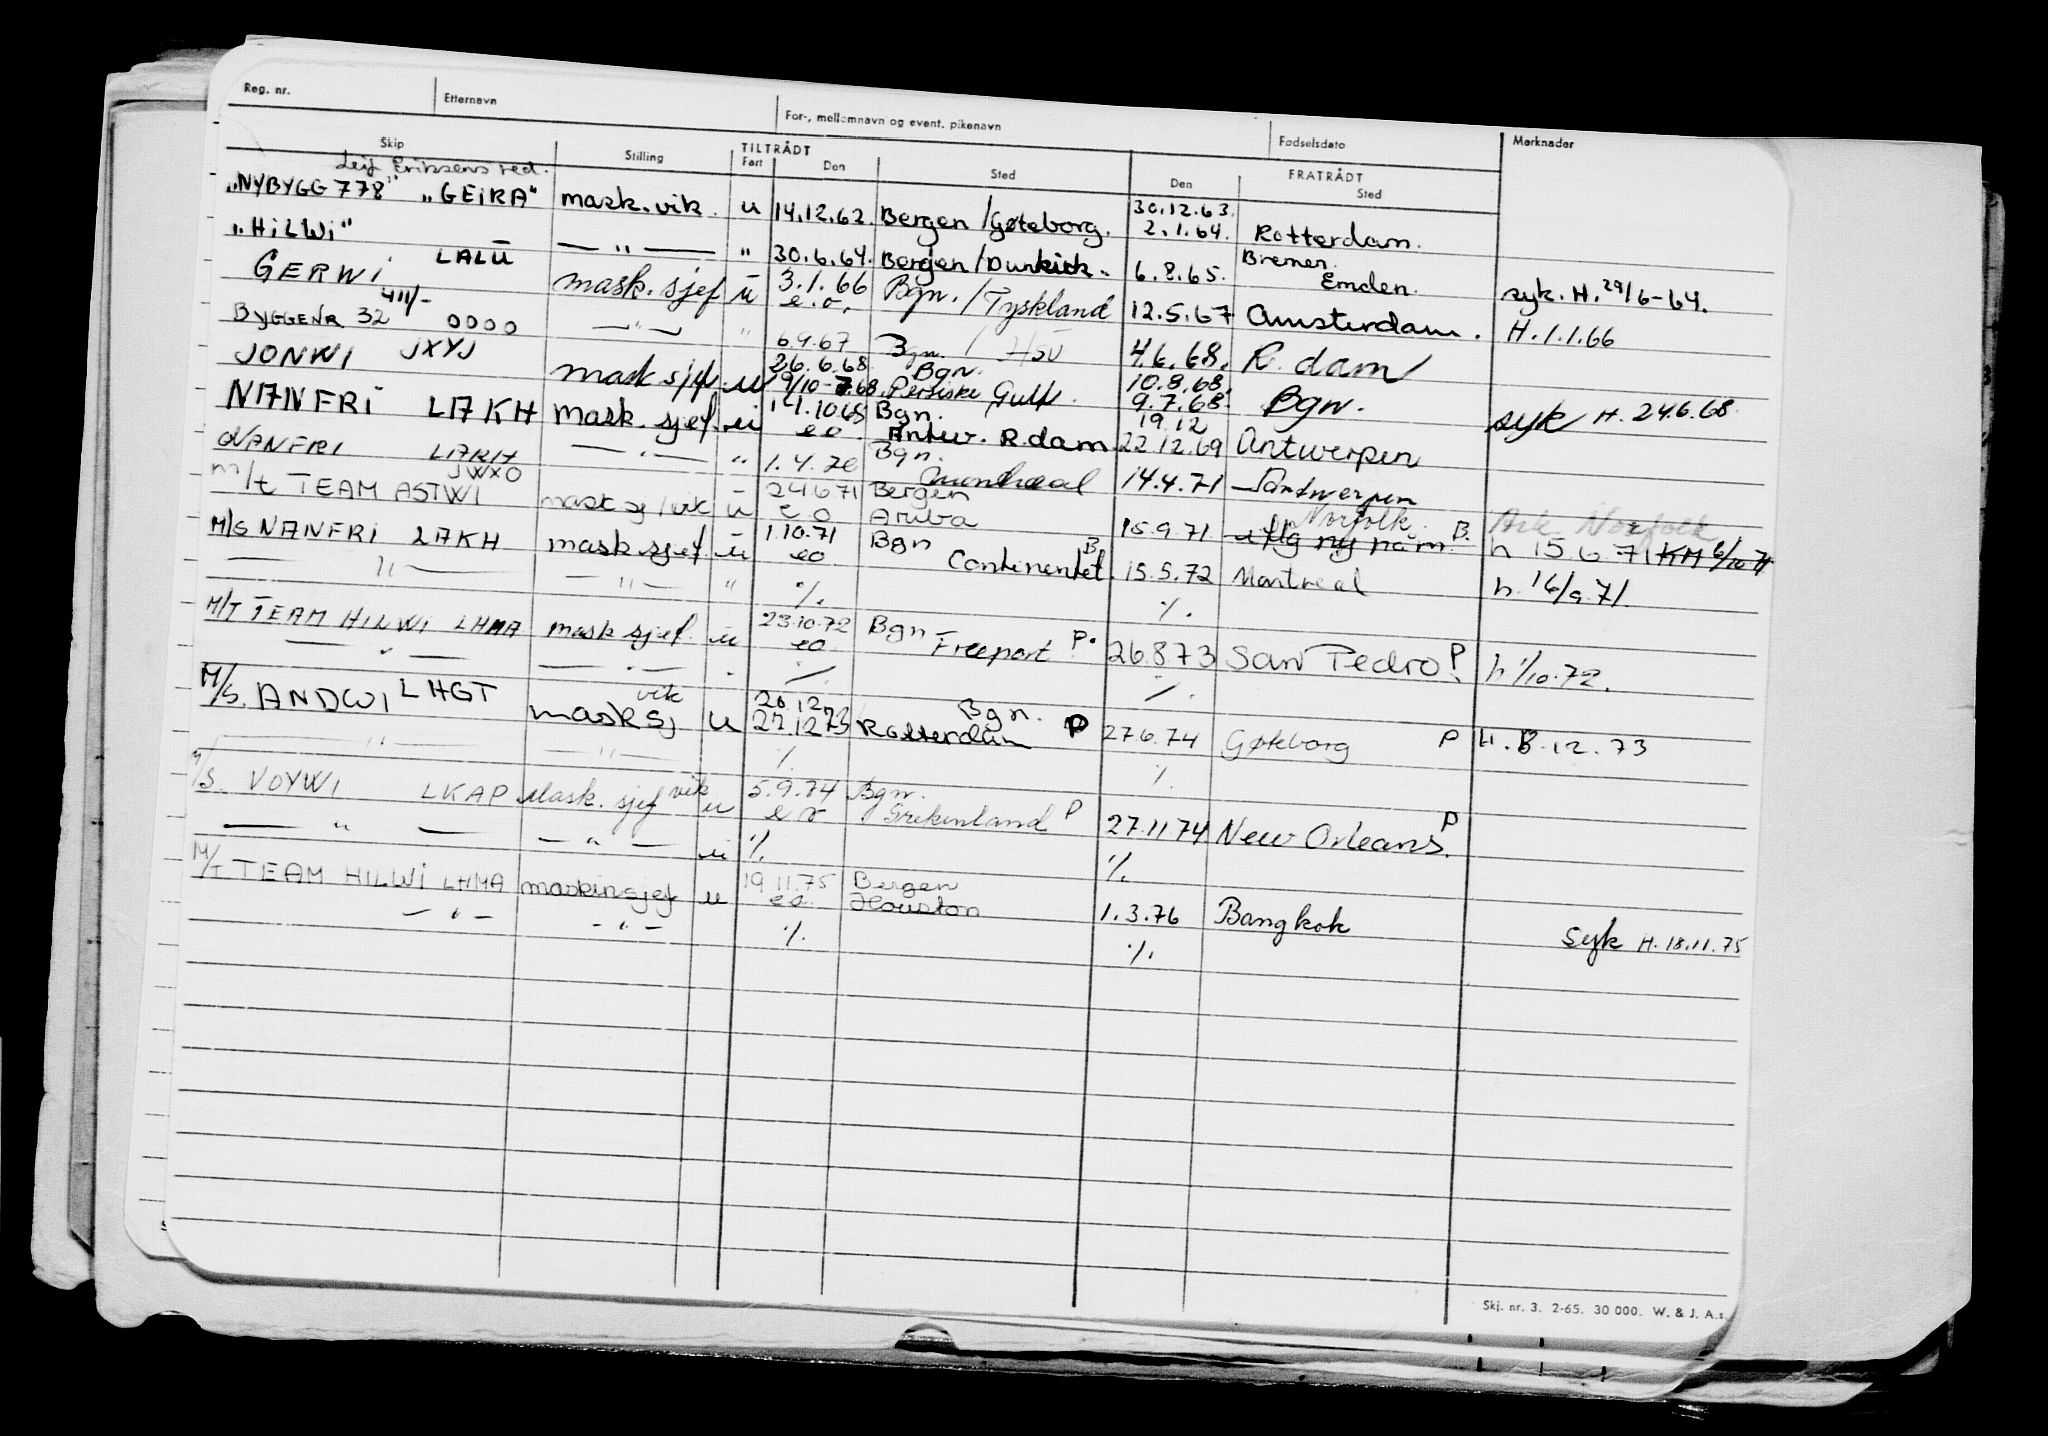 Reg. nr. Etternavn For-, mellomnavn og event. pikenavn Fødselsdato Merknader
Skip Stilling TILTRÅDT Fart Den Sted FRATRÅDT Den Sted
Leif Eriksens red.
"NYBYGG 778" "GEIRA" mask.vik. u 14.12.62. Bergen/Gøteborg. 30.12.63. 2.1.64. Rotterdam.
"HILWI" — " — " 30.6.64. Bergen/Dunkirk. 6.8.65. Bremen. Emden. syk. H. 29/6-64.
GERWI LALU mask. sjef u 3.1.66 e.o. Bgn. / Tyskland 12.5.67 Amsterdam. H. 1.1.66
BYGGENR 32 411/- OOOO — " — " 6.9.67 Bgn. / 4.6.68. R.dam
JONWI JXYJ mask sjef u 26.6.68 9/10-768. Bgn. Persiske Gulf. 10.8.68. 9.7.68. Bgn. syk H. 24.6.68.
NANFRI LAKH mask. sjef. u 14.1068 eo. Bgn. Antw. R.dam 19.12 22.12.69 Antwerpen
NANFRI LAKH — " — " 1.4.70 Bgn. 14.4.71 Antwerpen
m/t TEAM ASTWI JWXO mask sj/vik u 24671 e o Bergen Aruba 15.9.71 Norfolk. B. Norfolk h 15.6.71 KM 6/10 71
M/S NANFRI LAKH mask sjef u 1.10.71 eo Bgn Continentet. B 15.5.72 Montreal h. 16/9.71.
— " — — " — " %. %.
M/T TEAM HILWI LHMA mask sjef. u 23.10.72 eo Bgn Freeport P. 26.8.73 San Pedro P. h 1/10.72.
— " — — " — " %. %.
M/S. ANDWI LHGT mask sj vik u 20.12. 27.12.73 Bgn. Rotterdam P 27.6.74 Gøteborg P H. 8.12.73
— " — — " — %. %.
M/S. VOYWI LKAP Mask. sjef vik u 5.9.74 e o Bgn. Grekenland P 27.11.74 New Orleans. P
— " — — " — u %. %.
M/t TEAM HILWI LHMA maskinsjef u 19.11.75 eo. Bergen Houston 1.3.76 Bangkok syk H. 18.11.75
— " — — " — %. %.
Skj. nr. 3. 2-65. 30 000. W. & J. A.s.